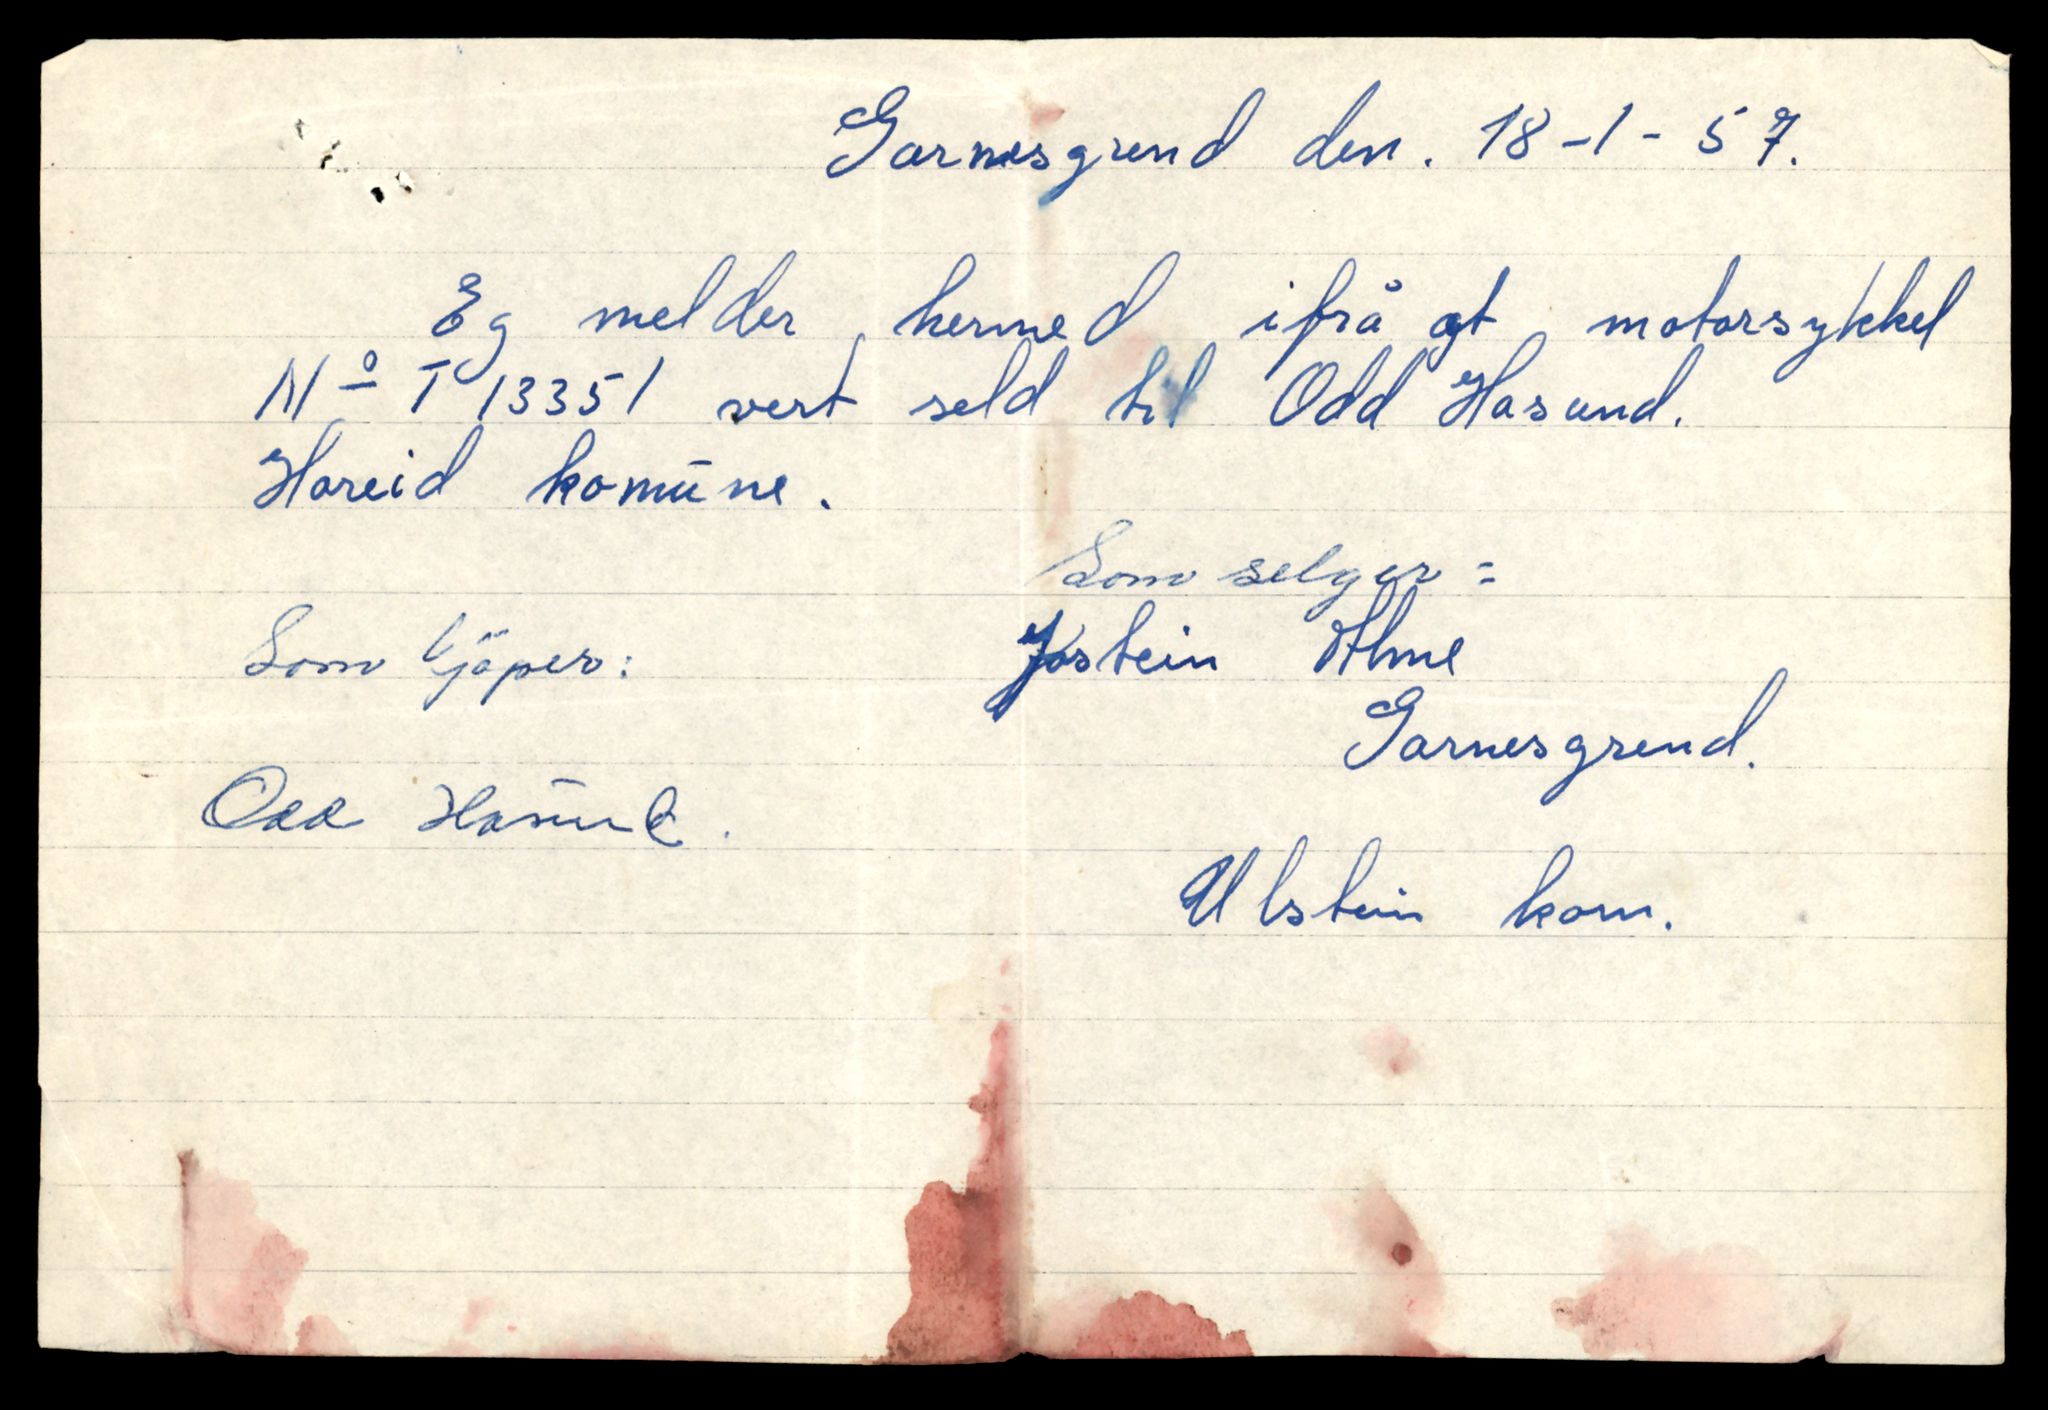 Garnesgrend den. 18-1-57.
Eg melder hermed ifrå at motorsykkel
Nº T 13351 vert seld til Odd Hasund.
Hareid komūne.
Som selger =
Som kjøper:
Jostein Alme
Garnesgrend.
Odd Hasūnd.
Ulstein kom.